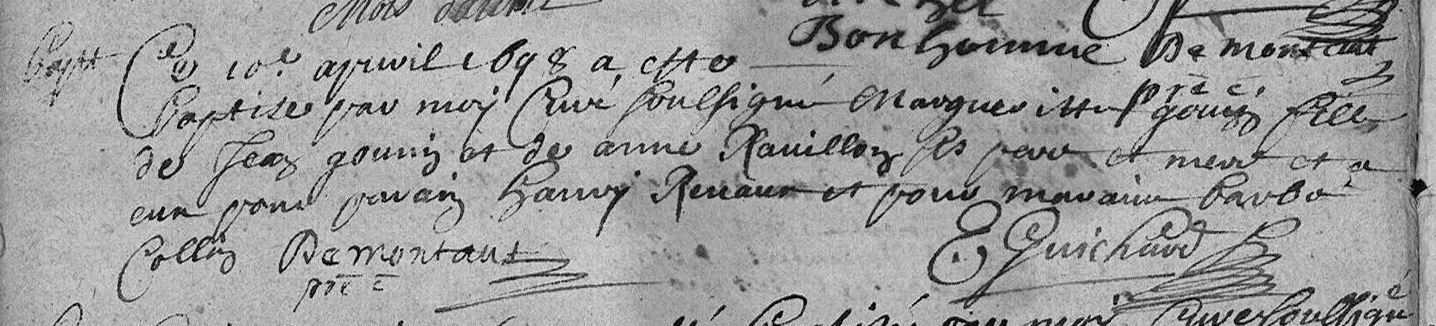 Bonhomme Demontaut
Bapt Ce 10e apvril 1698 a este
prē
Baptisée par moy Curé soussigné Margueritte gouin fille
de Jean gouin et de anne Rauillon ses pere et mere et a
eue pour parain hanry Renaux et pour maraine barbe
Collin Demontaut E. Guichard
prē
Baptisé par moy Curé soussigné